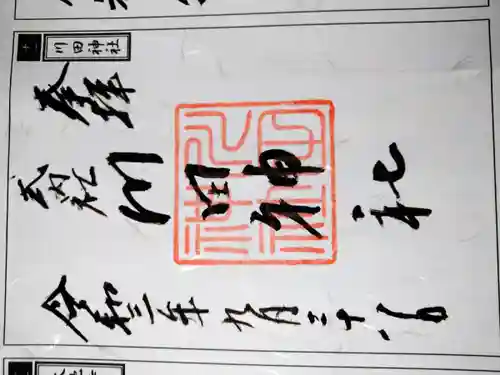 川田神社
奉拝
式内社
川田神社
令和三年九月